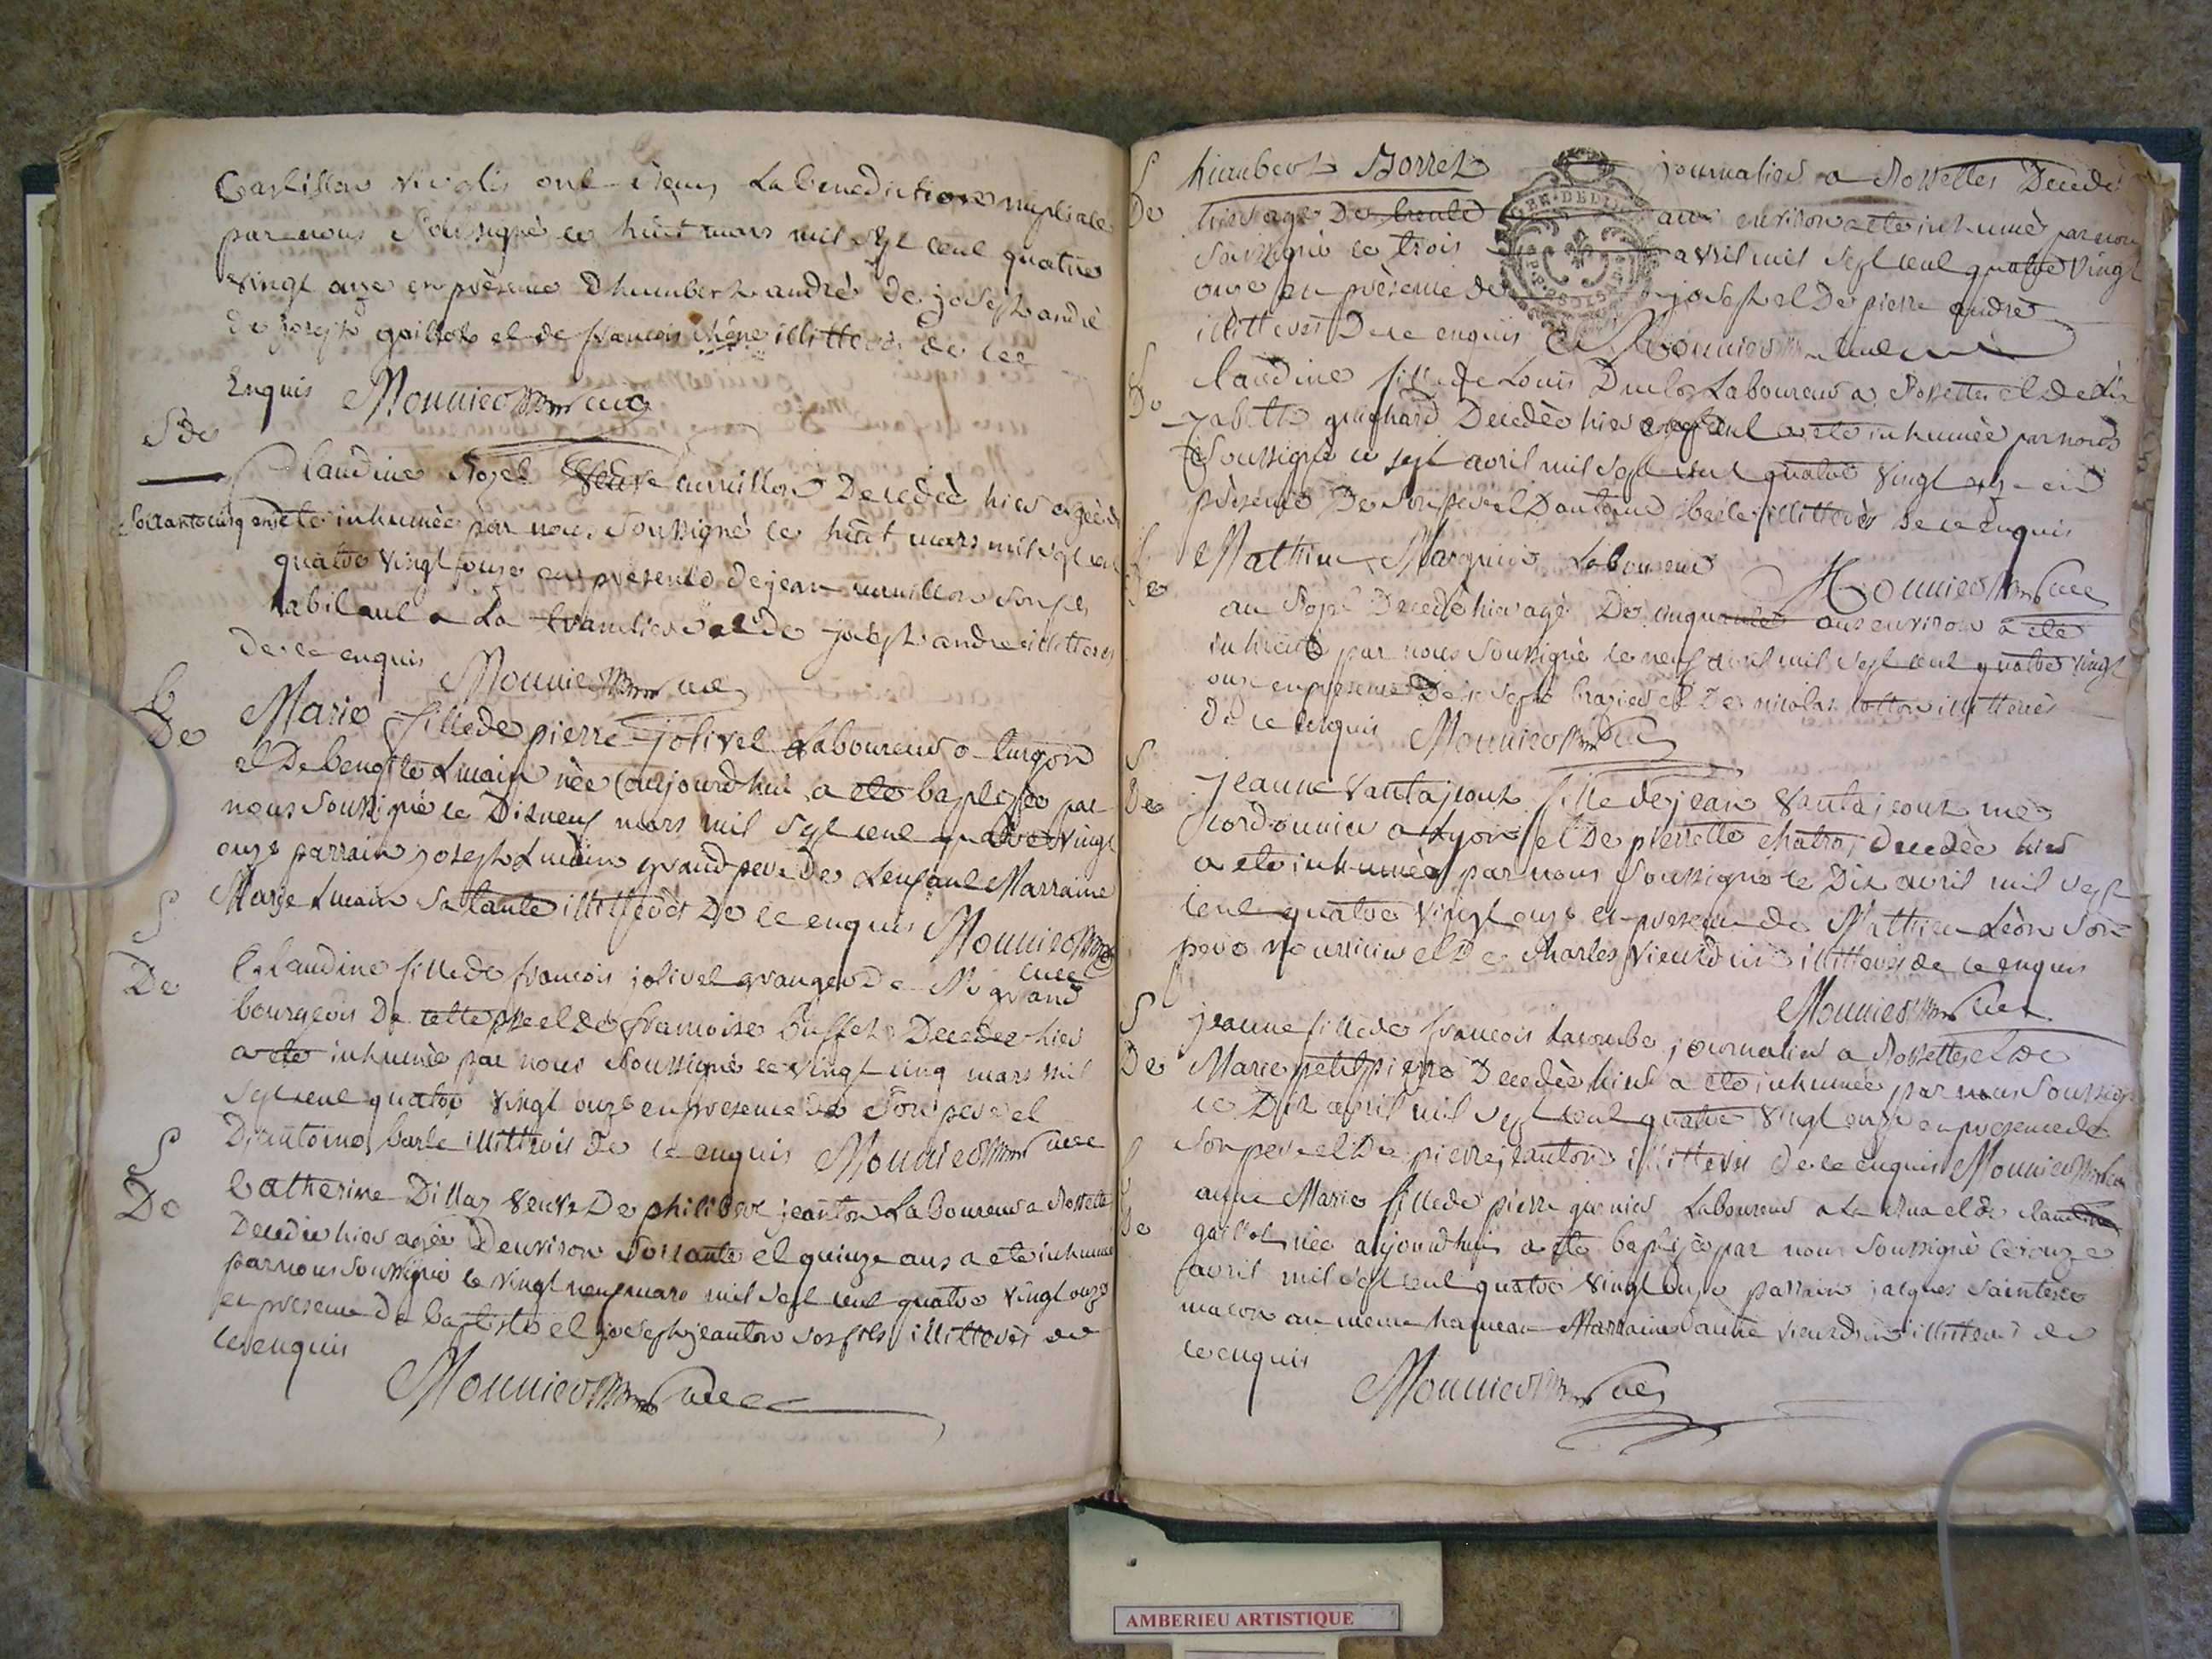 ont reçus La benediction nuptiale
par nous Soussigné ce huit mars mil sept cent quatre
vingt onze en présence dhumbert andré de joseph andré
de joseph gaillot et de francois illitteres de ce
Enquis Monnier curé
S de
Claudine Royet Veuve cuvillon Decedée hier agée de
Soixante cinq ans a ete inhumée par nous Soussigné ce huit mars mil sept cent
quatre vingt onze en presence de jean cuvillon son fils
habitant a La et de joseph andre illitteres
de ce enquis Monnier curé
B
De
Marie fille de pierre jolivet Laboureur a turgon
et De Lmain née aujourdhui a ete baptisée par
nous Soussigné le Dixneuf mars mil sept cent quatre vingt
onze parrain joseph Lmain grand pere De Lenfant Marraine
Marie Lmain Sa tante illitterès De ce enquis Monnier
curé
S
De
Claudine fille de francois jolivet granger De Mr grand
bourgeois De cette psse et de francoise buffet Decedee hier
a ete inhumée par nous Soussigné ce vingt cinq mars mil
sept cent quatre vingt onze en presence de Son pere et
D'antoine barle illitterés De ce enquis Monnier curé
S
De
Catherine Dillaz veuve De philibert jeanton Laboureur a Rossette
Decedée hier agée Denviron Soixante et quinze ans a ete inhumée
par nous Soussigné le vingt neuf mars mil sept cent quatre vingt onze
en presence De baptiste et joseph jeanton ses fils illitterès de
ce enquis
Monnier curé
S
De
humbert Borret journalier a Rossettes Decedé
hier agé De trente ans environ a ete inhumé par nous
Soussigné le trois avril mil sept cent quatre vingt
onze en présence de joseph et De pierre andré
illitterés De ce enquis Monnier curé
S
De
Claudine fille de Louis Duclos Laboureur a Rossettes et De Eli
zabeth guichard Decedée hier a ete inhumée par nous
Soussigné ce sept avril mil sept cent quatre vingt onze en
présence De Son pere et D'antoine illitterés de ce enquis
Monnier curé
S
De
Mathieu Marguin Laboureur
au Decedé hier agé De cinquante ans environ a ete
inhumé par nous Soussigné le neuf avril mil sept cent quatre vingt
onze en presence De joseph brazier et De nicolas cotton illitterés
De ce enquis Monnier curé
S
De
jeanne Vantajoux fille de jean Vantajoux me
cordonnier a Lyon et De pierrette Matra, Decedée hier
a ete inhumée par nous Soussigné le Dix avril mil sept
cent quatre vingt onze en presence de Mathieu Léon son
pere nourricier et De Charles Vieurdin illitterés de ce enquis
Monnier curé
S
De
jeanne fille de francois Lacombe journalier a Rossettes et De
Marie petitpierre Decedée hier a ete inhumée par nous Soussigné
le Dix avril mil sept cent quatre vingt onze en presence de
son pere et De pierre jeanton illitterés de ce enquis Monnier curé
B
De
anne Marie fille de pierre garnier Laboureur a La et de claudine
gaillot née aujourdhui a ete baptisée par nous Soussigné ce onze
avril mil sept cent quatre vingt onze parrain jacques Sainteve
macon au meme hameau Marraine anne vieurdin illitterés de
ce enquis
Monnier curé
AMBERIEU ARTISTIQUE